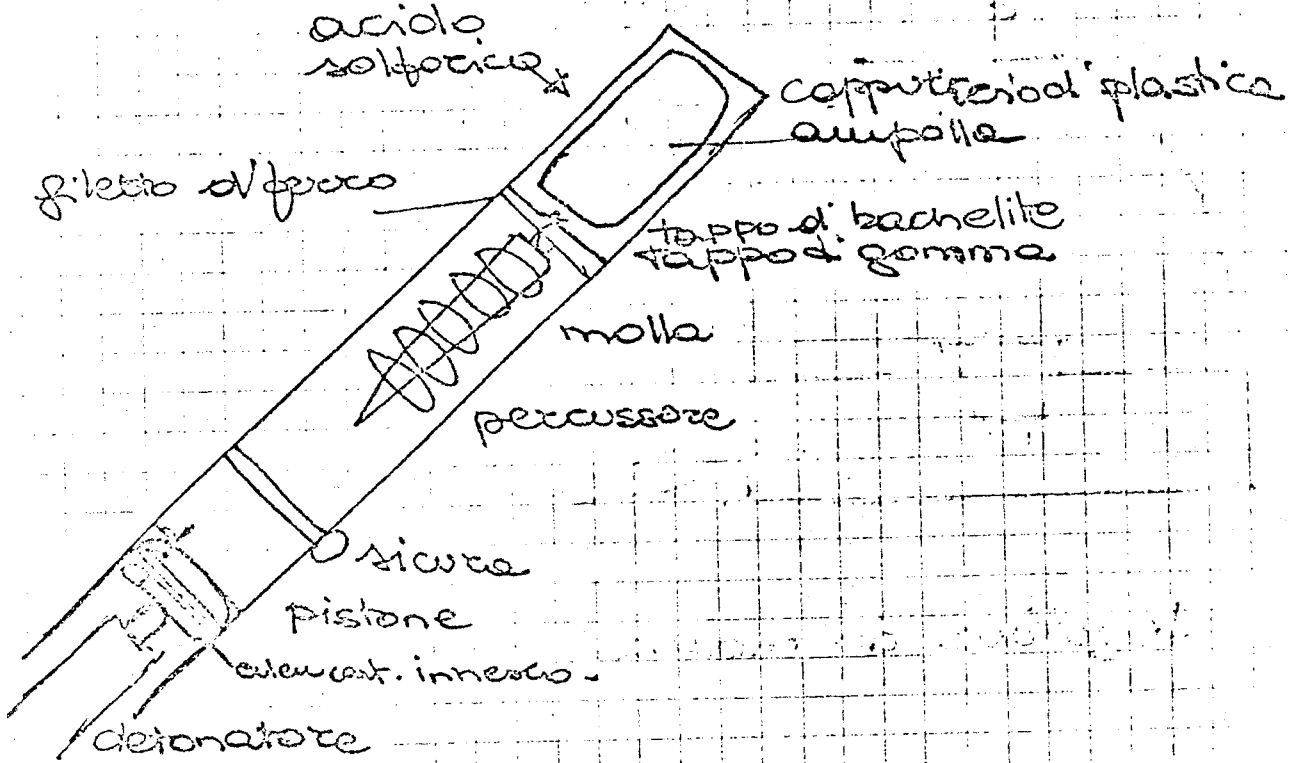 acido
solforico
cappuccio di plastica
ampolla
filetto d'ferro
tappo di bachelite
tappo di gomma
molla
percussore
sicura
pistone
innesco
detonatore